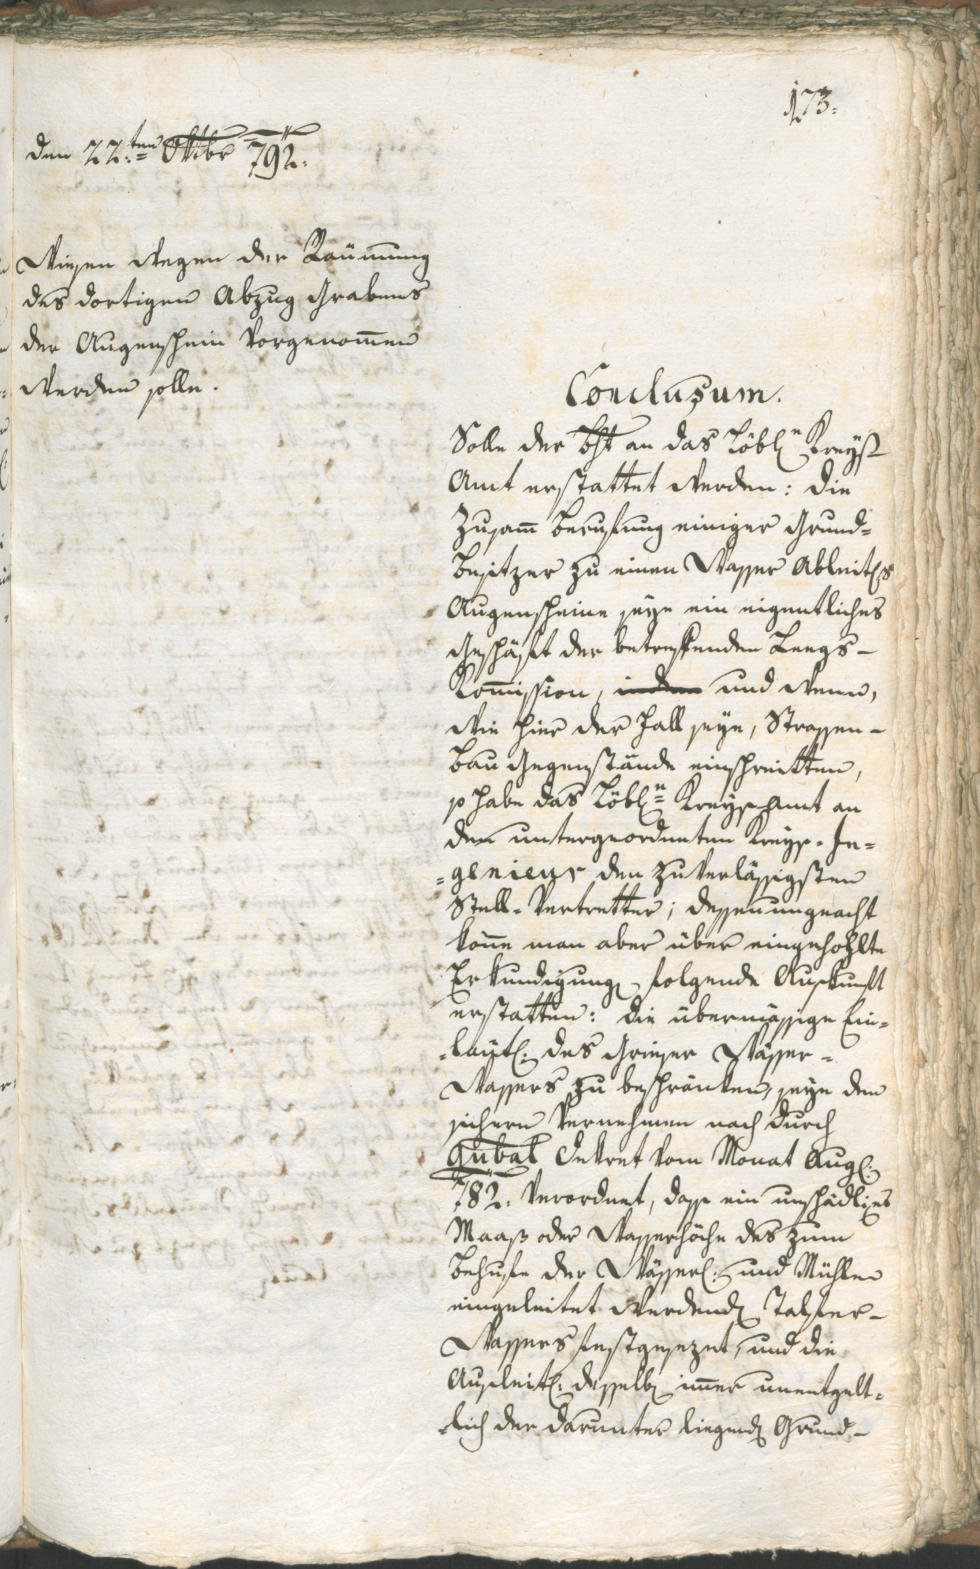 173.
den 22.ten Oktbr 792.
Wiesen wegen der Räumung
des dortigen Abzug Grabens
der Augenschein vorgenommen
werden solle.
Conclusum.
Solle der Bcht an das Löbln Kreyß
Amt erstattet werden: die
Zusamm Berufung einiger Grund=
besitzer zu einen Wasser Ableitgs
Augenscheine seye ein eigentliches
Geschäft der betreffenden Leegs-
Kommission, indem und wenn,
wie hier der Fall seye, Strassen-
bau Gegenstände einschreitten,
so habe das Löbln Kreysamt an
den untergeordneten Kreys-In=
=genieur den zuverlässigsten
Stell-Vertretter; dessenungeacht
könne man aber über eingehohlte
Erkundigung folgende Auskunft
erstatten: die übermässige Ein=
=leitg. des Grieser Wässer-
Wassers zu beschränken, seye dem
sichern Vernehmen nach durch
Gubal Dekret vom Monat Aug.
782. verordnet, dass ein unschädliches
Maaß oder Wasserhöhe des zum
Behufe der Wässer. und Mühlen
eingeleitet werdend Talfer-
Wassers festgesezet, und die
Ausleitg. desselb immer unentgelt=
=lich der darunter liegend Grund-